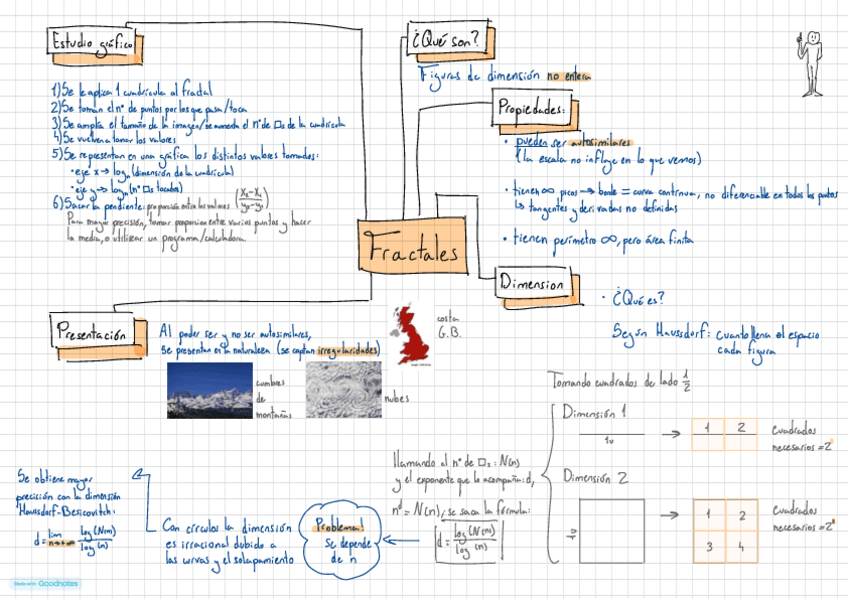 Estudio gráfico
1) Se le aplica 1 cuadrícula al fractal
2) Se toman el nº de puntos por los que pasa/toca
3) Se amplía el tamaño de la imagen/se aumenta el nº de □s de la cuadrícula
4) Se vuelven a tomar los valores
5) Se representan en una gráfica los distintos valores tomados:
• eje x → logn (dimensión de la cuadrícula)
• eje y → logn (nº □s tocados)
6) Sacar la pendiente: proporción entre los valores (x₂-x₁/y₂-y₁)
Para mayor precisión, tomar proporción entre varios puntos y hacer
la media, o utilizar un programa/calculadora.
¿Qué son?
Figuras de dimensión no entera
Propiedades:
• pueden ser autosimilares
(la escala no influye en lo que vemos)
• tienen ∞ picos → borde = curva continua, no diferenciable en todos los puntos
↳ tangentes y derivadas no definidas
• tienen perímetro ∞, pero área finita
Fractales
Dimension
• ¿Qué es?
Según Haussdorf: cuanto llena el espacio
cada figura
Presentación
Al poder ser y no ser autosimilares,
se presentan en la naturaleza (se captan irregularidades)
costa
G.B.
cumbres
de
montañas
nubes
Tomando cuadrados de lado 1/2
Dimensión 1
1u
1 2
Cuadrados
necesarios = 2
Dimensión 2
1u
1 2
3 4
Cuadrados
necesarios = 2
llamando al nº de □s: N(n)
y el exponente que lo acompaña: d,
n^d = N(n), se saca la fórmula:
d = log(N(n))/log(n)
Problema!
Se depende
de n
Con círculos la dimensión
es irracional debido a
las curvas y el solapamiento
Se obtiene mayor
precisión con la dimensión
Haussdorf-Besicovitch:
d = lim log(N(n))/log(n)
Made with Goodnotes